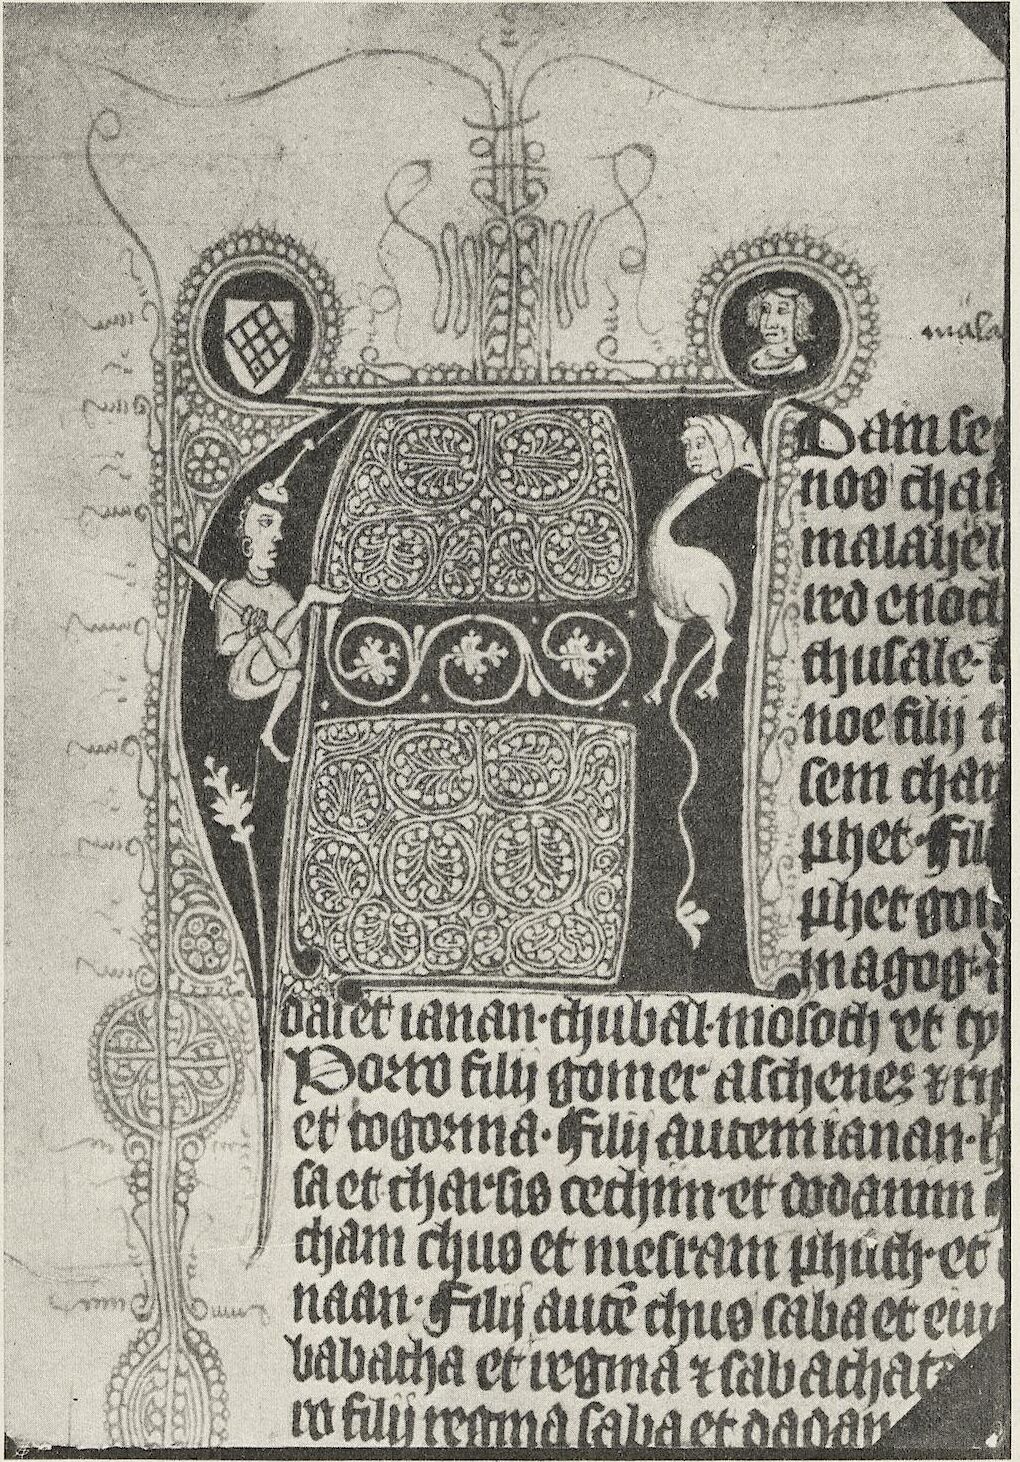 mala
A Dam se
nos chai
malalyel
ired enoch
thusale·
noe filij
sem cham
phet· Filij
phet gom
magog·
da et ianan·thubal·mosoch et ty
Porro filij gomer aschenes ⁊ rip
et togorma· Filij autem ianan· h
sa et tharsis cethim et dodanim
cham chus et mesram phuth· et
naan· Filij autē chus saba et eui
babatha et regma ⁊ sabathata
ro filij regma saba et dadan